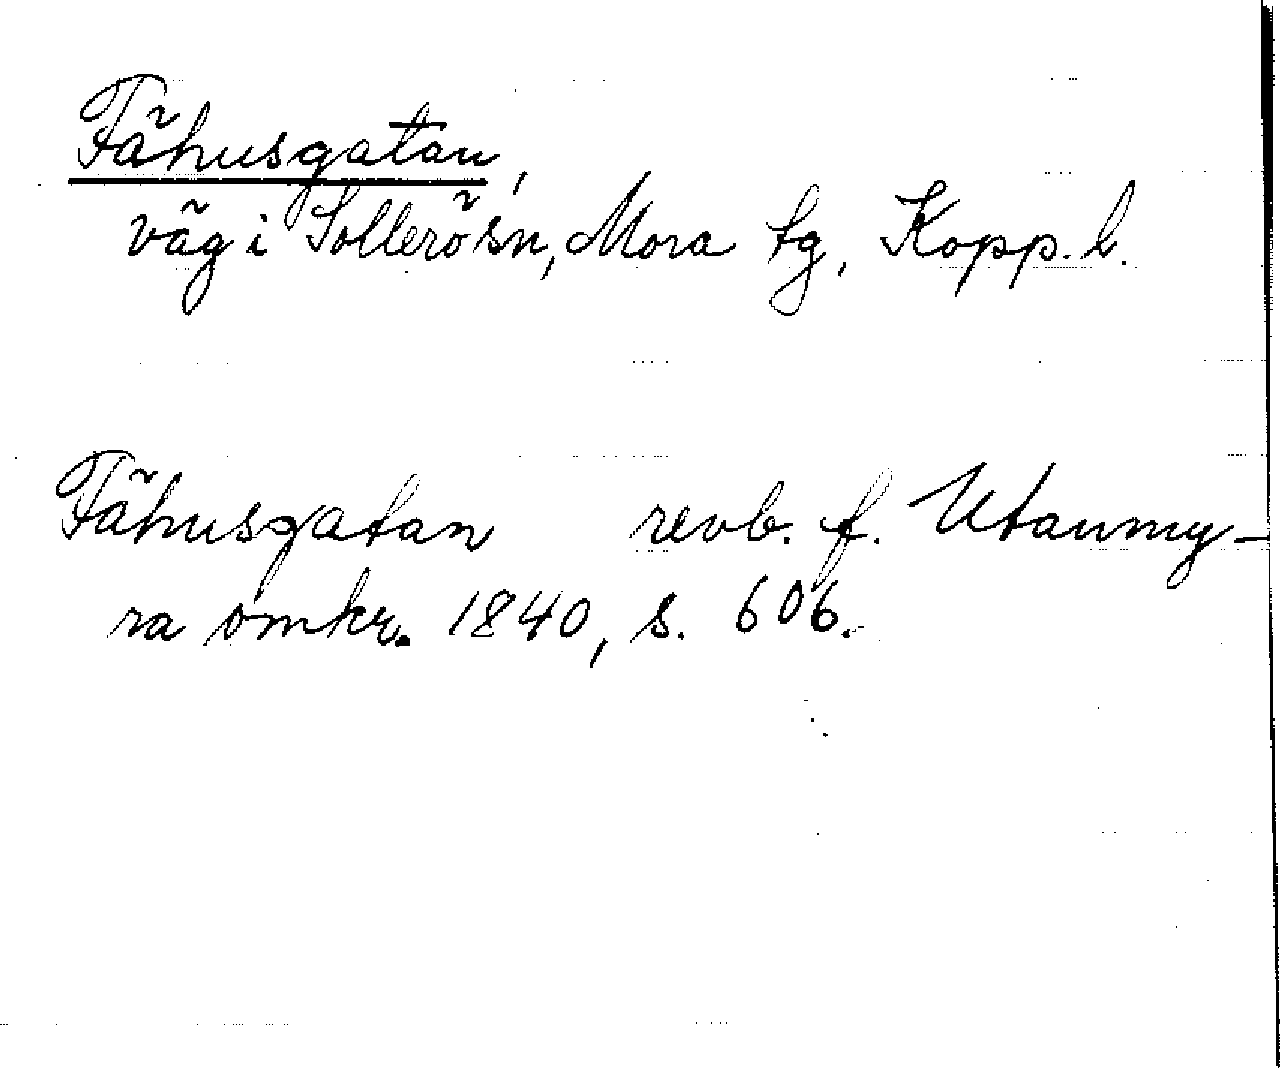 Fähusgatan,
väg i Sollerö sn, Mora tg, Kopp. l.
Fähusgatan revb. f. Utanmy-
ra omkr. 1840, s. 606.